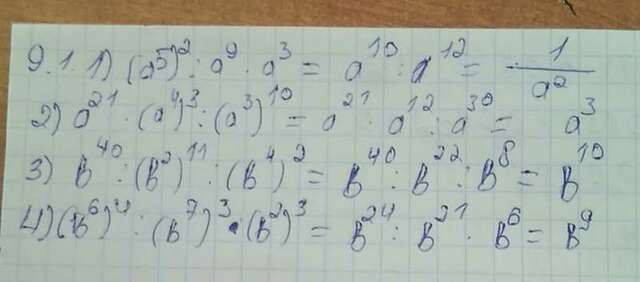 9.1. 1) (a⁵)² : a⁹ · a³ = a¹⁰ : a¹² = 1/a²
2) a²¹ · (a⁴)³ : (a³)¹⁰ = a²¹ · a¹² : a³⁰ = a³
3) в⁴⁰ : (в²)¹¹ : (в⁴)² = в⁴⁰ : в²² : в⁸ = в¹⁰
4) (в⁶)⁴ : (в⁷)³ · (в²)³ = в²⁴ : в²¹ · в⁶ = в⁹